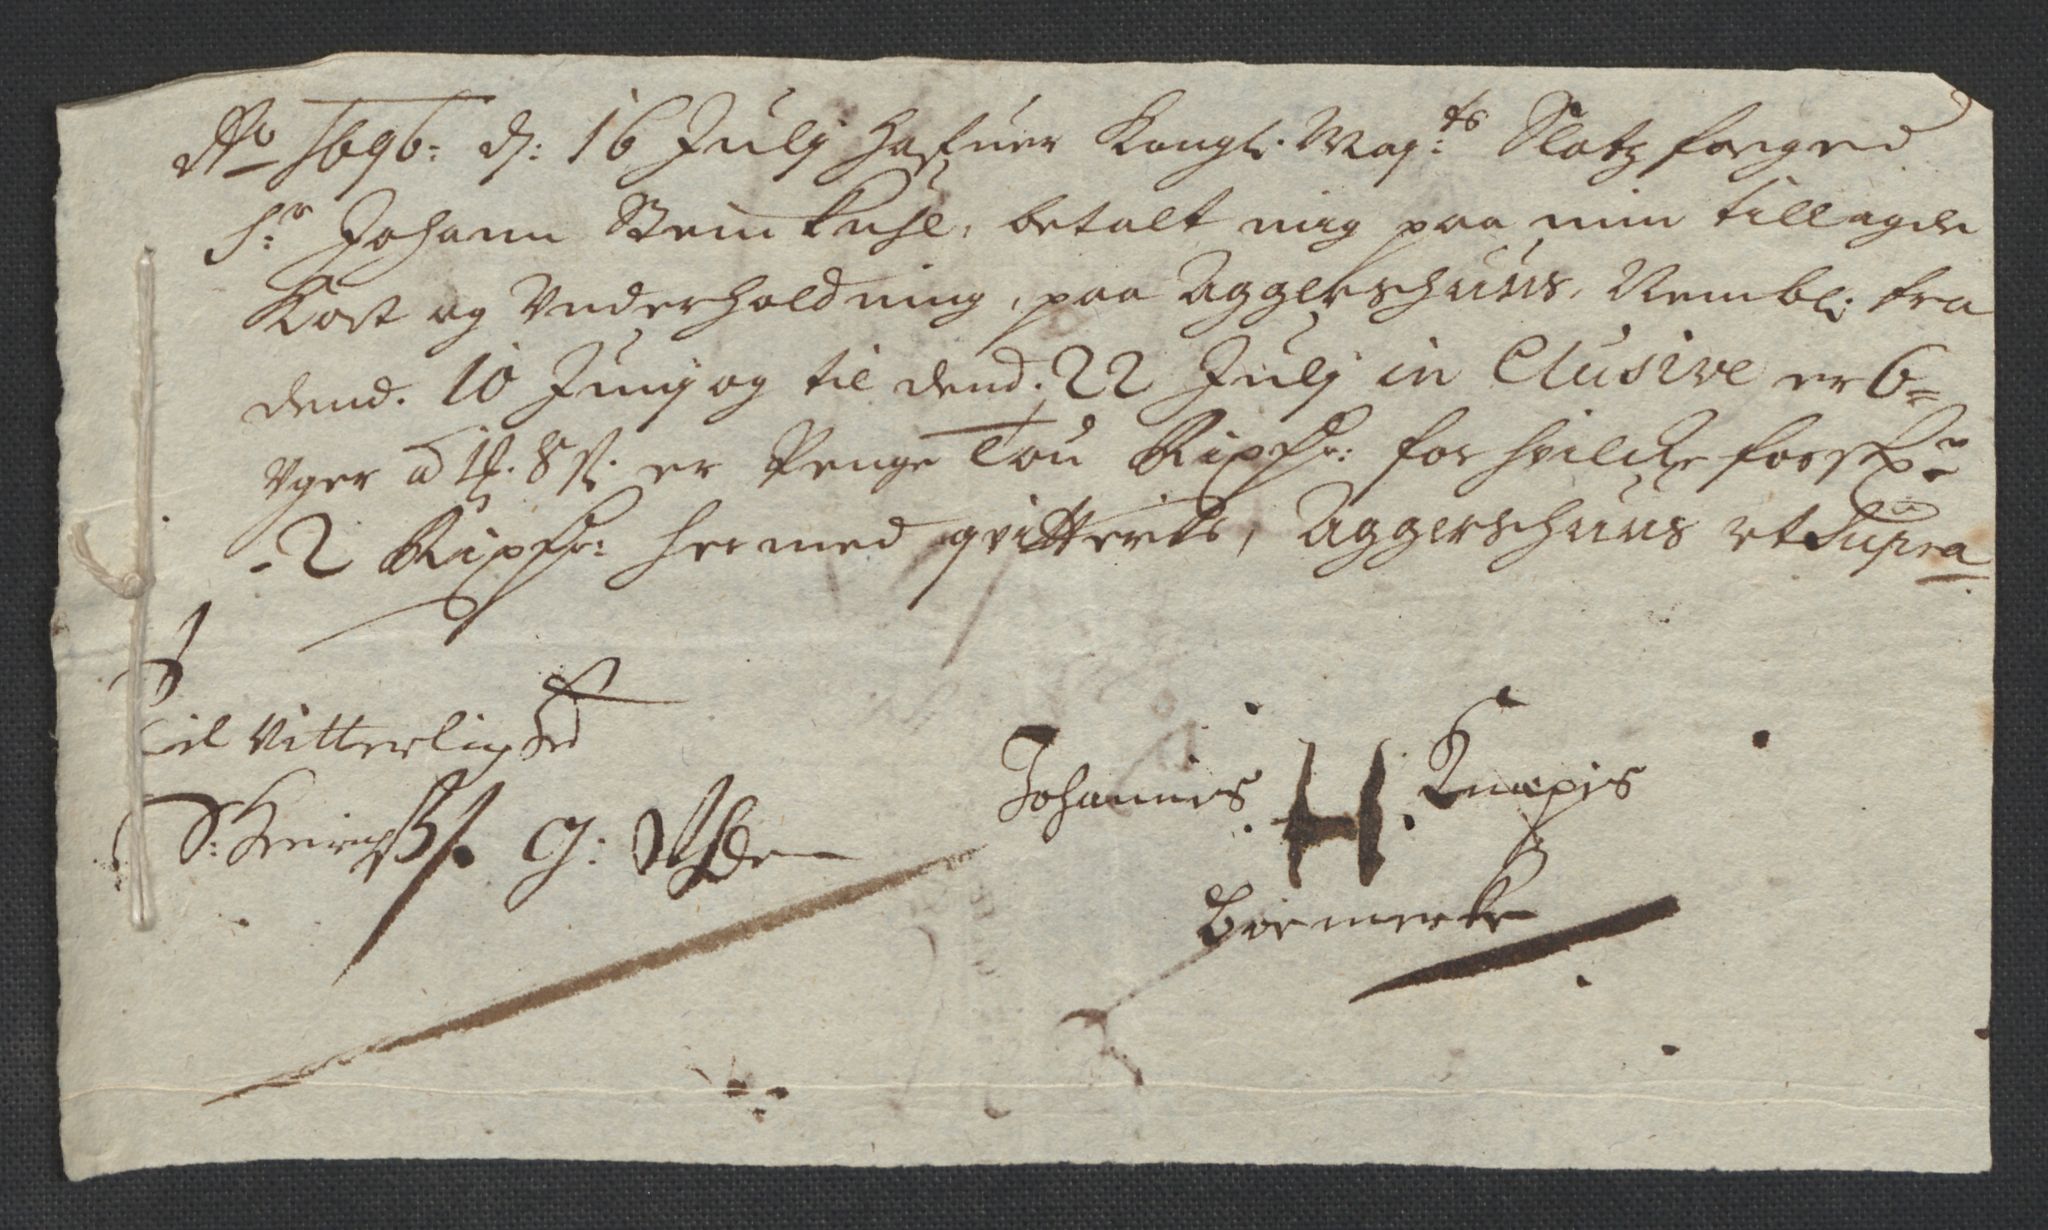 Ao 1696: d: 16 Julij Hafuer Kongl. Maj:ts Slotz foeged
Sr: Johann Steinkuhl, betalt mig paa min tillagde
Kost og Vnderholdning, paa Aggerschuus, Nembl: fra
dend. 10 Junij og til dend. 22 Julij in Clusive er 6=
Vger a 1 . 8 s. er Penge Tou Rixdr: for hvilcke forschr:ne
-2 Rixdr: hermed qvitteris, Aggerschuus ut Supra
Til Vitterlighed
Johannis H Knæpis
Boemerke